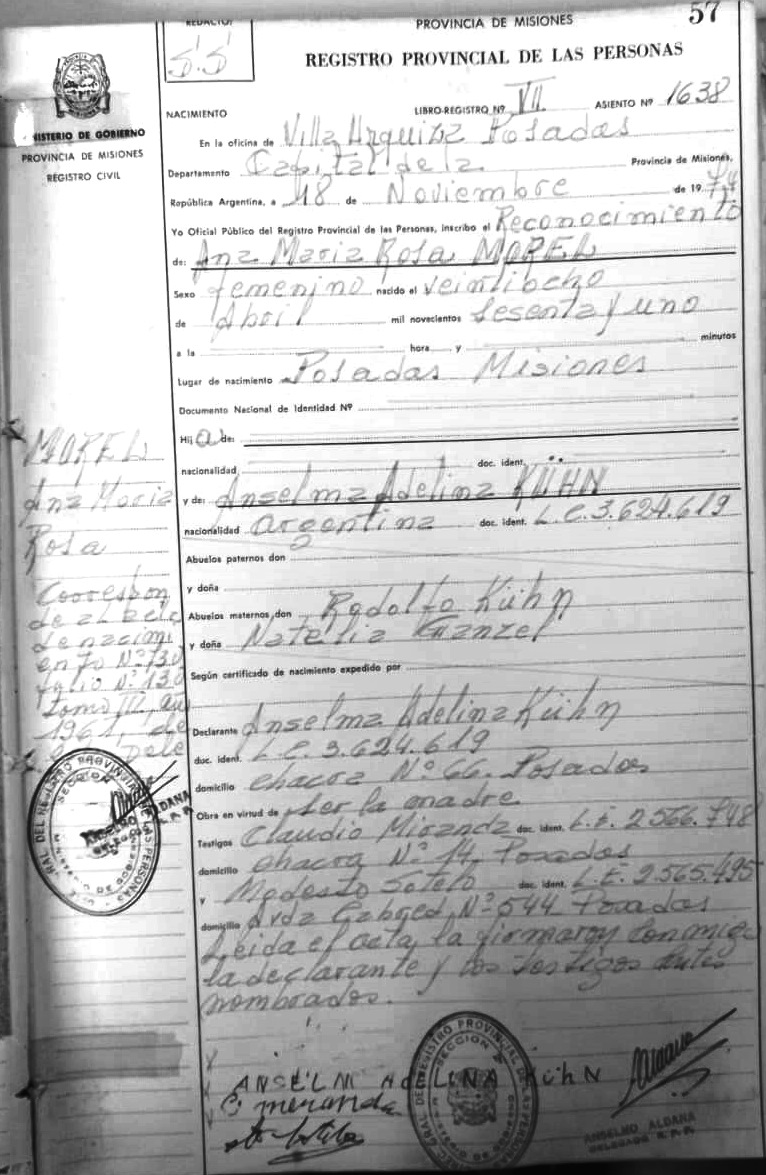 57
REDACTOR
PROVINCIA DE MISIONES
REGISTRO PROVINCIAL DE LAS PERSONAS
MINISTERIO DE GOBIERNO
PROVINCIA DE MISIONES
REGISTRO CIVIL
NACIMIENTO LIBRO-REGISTRO Nº VII ASIENTO Nº 1638
En la oficina de Villa Urquiza Posadas
Departamento Capital de la Provincia de Misiones,
República Argentina, a 18 de Noviembre de 1974
Yo Oficial Público del Registro Provincial de las Personas, inscribo el Reconocimiento
de: Ana Maria Rosa MOREL
Sexo femenino nacido el veintiocho
de Abril mil novecientos sesenta y uno
a la hora y minutos
Lugar de nacimiento Posadas Misiones
Documento Nacional de Identidad Nº
Hija de:
nacionalidad doc. ident.
y de: Anselma Adelina KÜHN
nacionalidad argentina doc. ident. L.C. 3.624.619
Abuelos paternos don
y doña
Abuelos maternos, don Rodolfo Kühn
y doña Natalia
Según certificado de nacimiento expedido por
Declarante Anselma Adelina Kühn
doc. ident. L.C. 3.624.619
domicilio chacra Nº 66. Posadas
Obra en virtud de ser la madre
Testigos Claudio Miranda doc. ident. L.E. 2566.748
domicilio chacra Nº 14, Posadas
y Modesto Sotelo doc. ident. L.E. 2.565.495
domicilio Avda Cabred Nº 544 Posadas
Leida el acta, la firmaron conmigo
la declarante y los testigos antes
nombrados.
MOREL
Ana Maria
Rosa
Correspon
de al acta
de nacimi
ento Nº 730
folio Nº 130
tomo III, año
1961, de
ANSELMO ALDANA
ANSELM ADELINA KÜHN
C. meranda
ANSELMO ALDANA
DELEGADO R. P. P.